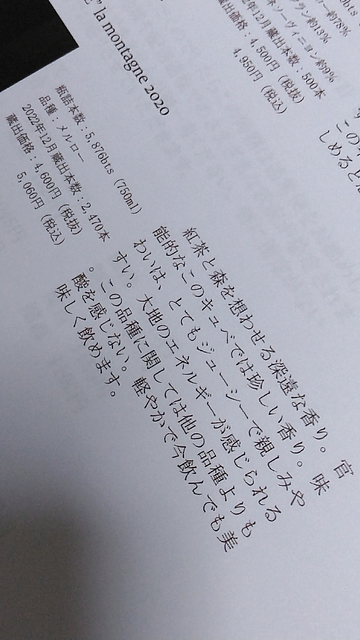 ー約78%
ラン約13%
ネソーヴィニヨン約9%
年12月蔵出本数：500本
出価格：4,500円（税抜）
4,950円（税込）
この
しめると
" la montagne 2020
瓶詰本数：5,876bls（750ml）
品種：メルロー
2022年12月蔵出本数：2,470本
蔵出価格：4,600円（税抜）
5,060円（税込）
紅茶と森を想わせる深遠な香り。官
能的なこのキュベでは珍しい香り。味
わいは、とてもジューシーで親しみや
すい。大地のエネルギーが感じられる
。この品種に関しては他の品種よりも
酸を感じない。軽やかで今飲んでも美
味しく飲めます。